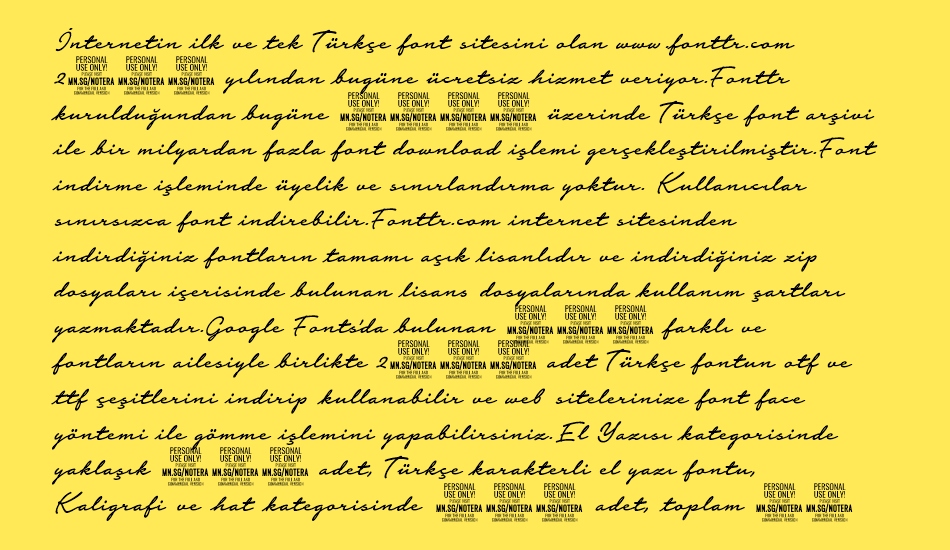 İnternetin ilk ve tek Türkçe font sitesini olan www fonttr.com
2 PERSONAL USE ONLY! PLEASE VISIT MN.SG/NOTERA FOR THE FULL AND COMMERCIAL VERSION PERSONAL USE ONLY! PLEASE VISIT MN.SG/NOTERA FOR THE FULL AND COMMERCIAL VERSION PERSONAL USE ONLY! PLEASE VISIT MN.SG/NOTERA FOR THE FULL AND COMMERCIAL VERSION yılından bugüne ücretsiz hizmet veriyor.Fonttr
kurulduğundan bugüne PERSONAL USE ONLY! PLEASE VISIT MN.SG/NOTERA FOR THE FULL AND COMMERCIAL VERSION PERSONAL USE ONLY! PLEASE VISIT MN.SG/NOTERA FOR THE FULL AND COMMERCIAL VERSION PERSONAL USE ONLY! PLEASE VISIT MN.SG/NOTERA FOR THE FULL AND COMMERCIAL VERSION PERSONAL USE ONLY! PLEASE VISIT MN.SG/NOTERA FOR THE FULL AND COMMERCIAL VERSION üzerinde Türkçe font arşivi
ile bir milyardan fazla font download işlemi gerçekleştirilmiştir.Font
indirme işleminde üyelik ve sınırlandırma yoktur. Kullanıcılar
sınırsızca font indirebilir.Fonttr.com internet sitesinden
indirdiğiniz fontların tamamı açık lisanlıdır ve indirdiğiniz zip
dosyaları içerisinde bulunan lisans dosyalarında kullanım şartları
yazmaktadır.Google Fonts'da bulunan PERSONAL USE ONLY! PLEASE VISIT MN.SG/NOTERA FOR THE FULL AND COMMERCIAL VERSION PERSONAL USE ONLY! PLEASE VISIT MN.SG/NOTERA FOR THE FULL AND COMMERCIAL VERSION PERSONAL USE ONLY! PLEASE VISIT MN.SG/NOTERA FOR THE FULL AND COMMERCIAL VERSION farklı ve
fontların ailesiyle birlikte 2 PERSONAL USE ONLY! PLEASE VISIT MN.SG/NOTERA FOR THE FULL AND COMMERCIAL VERSION PERSONAL USE ONLY! PLEASE VISIT MN.SG/NOTERA FOR THE FULL AND COMMERCIAL VERSION PERSONAL USE ONLY! PLEASE VISIT MN.SG/NOTERA FOR THE FULL AND COMMERCIAL VERSION adet Türkçe fontun otf ve
ttf çeşitlerini indirip kullanabilir ve web sitelerinize font face
yöntemi ile gömme işlemini yapabilirsiniz.El Yazısı kategorisinde
yaklaşık PERSONAL USE ONLY! PLEASE VISIT MN.SG/NOTERA FOR THE FULL AND COMMERCIAL VERSION PERSONAL USE ONLY! PLEASE VISIT MN.SG/NOTERA FOR THE FULL AND COMMERCIAL VERSION PERSONAL USE ONLY! PLEASE VISIT MN.SG/NOTERA FOR THE FULL AND COMMERCIAL VERSION adet, Türkçe karakterli el yazı fontu,
Kaligrafi ve hat kategorisinde PERSONAL USE ONLY! PLEASE VISIT MN.SG/NOTERA FOR THE FULL AND COMMERCIAL VERSION PERSONAL USE ONLY! PLEASE VISIT MN.SG/NOTERA FOR THE FULL AND COMMERCIAL VERSION PERSONAL USE ONLY! PLEASE VISIT MN.SG/NOTERA FOR THE FULL AND COMMERCIAL VERSION adet, toplam PERSONAL USE ONLY! PLEASE VISIT MN.SG/NOTERA FOR THE FULL AND COMMERCIAL VERSION PERSONAL USE ONLY! PLEASE VISIT MN.SG/NOTERA FOR THE FULL AND COMMERCIAL VERSION